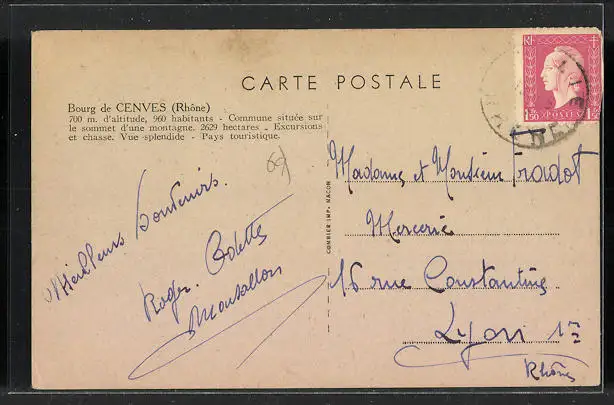 CARTE POSTALE
Bourg de CENVES (Rhône)
700 m. d'altitude, 960 habitants - Commune située sur
le sommet d'une montagne. 2629 hectares - Excursions
et chasse. Vue splendide - Pays touristique.
69
Meilleurs Souvenirs.
Roger. Odette
COMBIER IMP. MACON
RF
1F50 POSTES 1F50
Madame et Monsieur Fradot
Mercerie
16 rue Constantine
Lyon 1er
Rhône